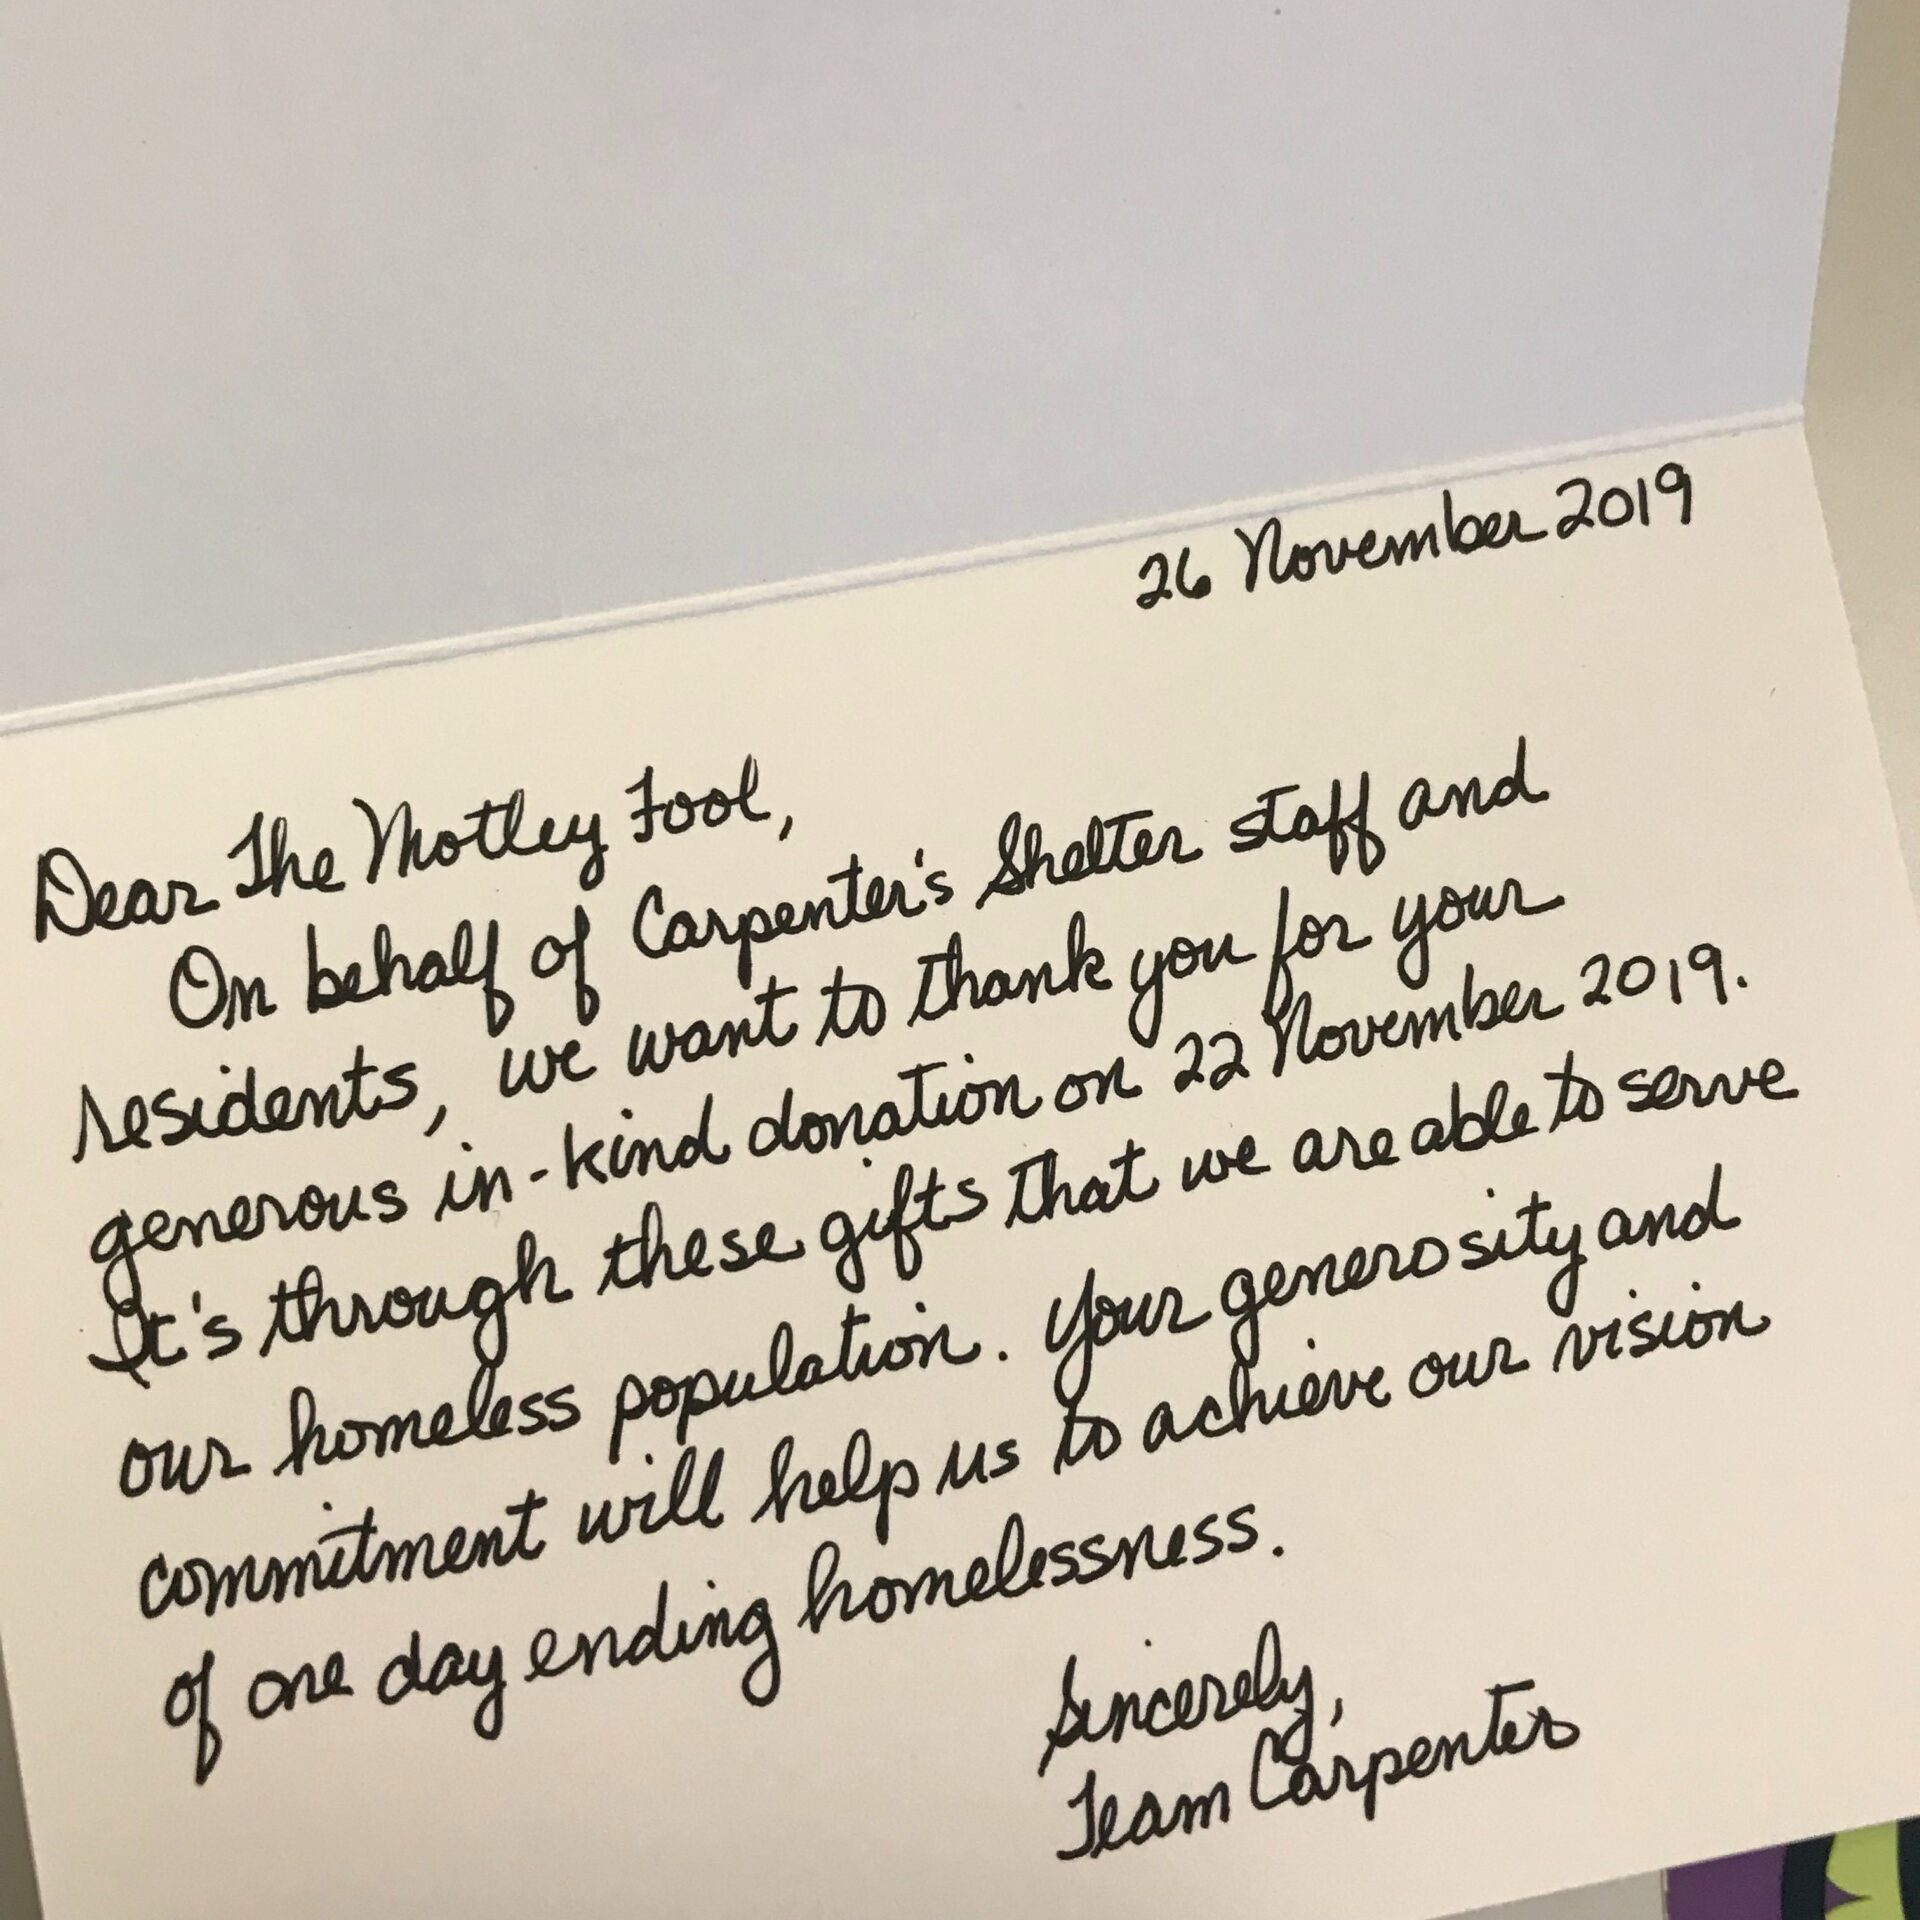 26 November 2019
Dear The Motley Fool,
On behalf of Carpenter's Shelter staff and
residents, we want to thank you for your
generous in-kind donation on 22 November 2019.
It's through these gifts that we are able to serve
our homeless population. Your generosity and
commitment will help us to achieve our vision
of one day ending homelessness.
Sincerely,
Team Carpenter